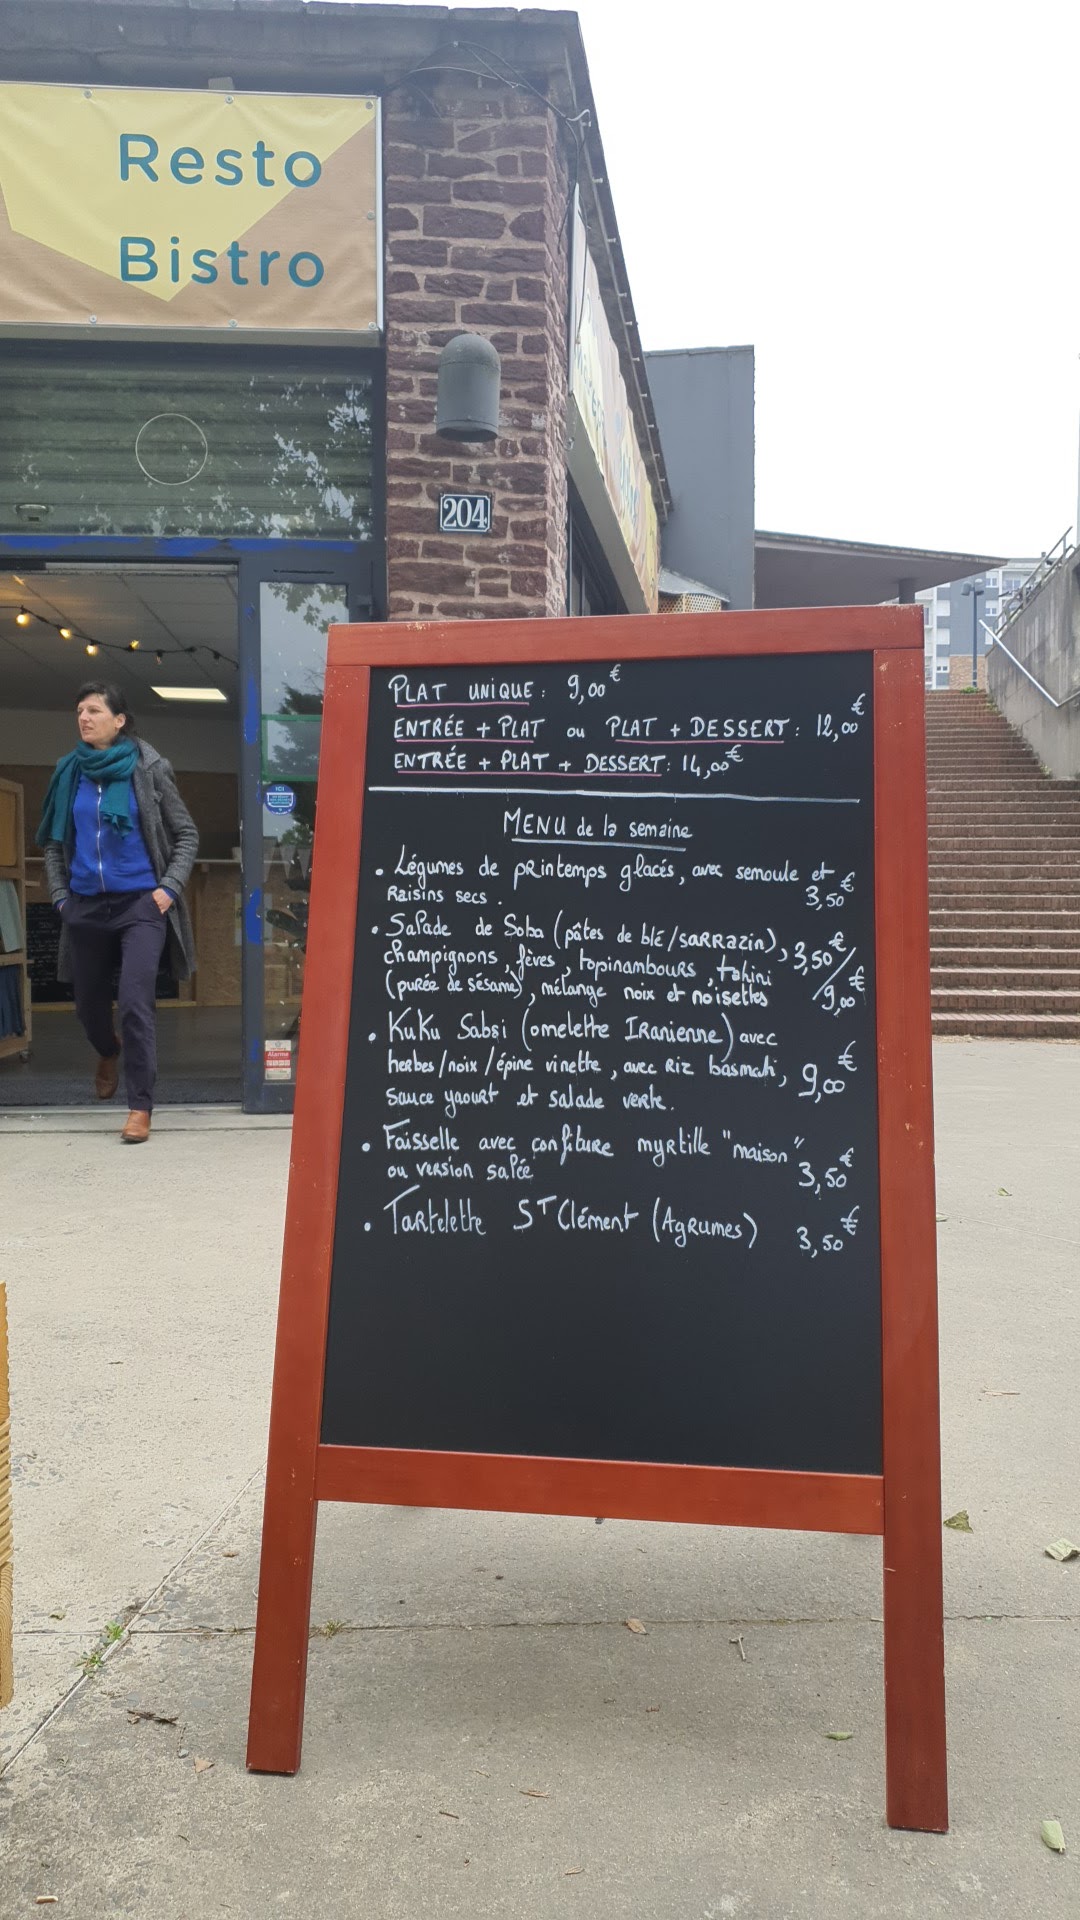 Resto
Bistro
204
PLAT UNIQUE : 9,00€
ENTRÉE + PLAT ou PLAT + DESSERT : 12,00€
ENTRÉE + PLAT + DESSERT : 14,00€
MENU de la semaine
• Légumes de printemps glacés, avec semoule et
Raisins secs. 3,50€
• Salade de Soba (pâtes de blé/sarrazin), 3,50€/
champignons, fèves, topinambours, tahini
(purée de sésame), mélange noix et noisettes 9,00€
• Kuku Sabsi (omelette Iranienne) avec
herbes/noix/épine vinette, avec Riz basmati, 9,00€
Sauce yaourt et salade verte.
• Faisselle avec confiture myrtille "maison"
ou version salée 3,50€
• Tartelette ST Clément (Agrumes) 3,50€
ICI
Alarme